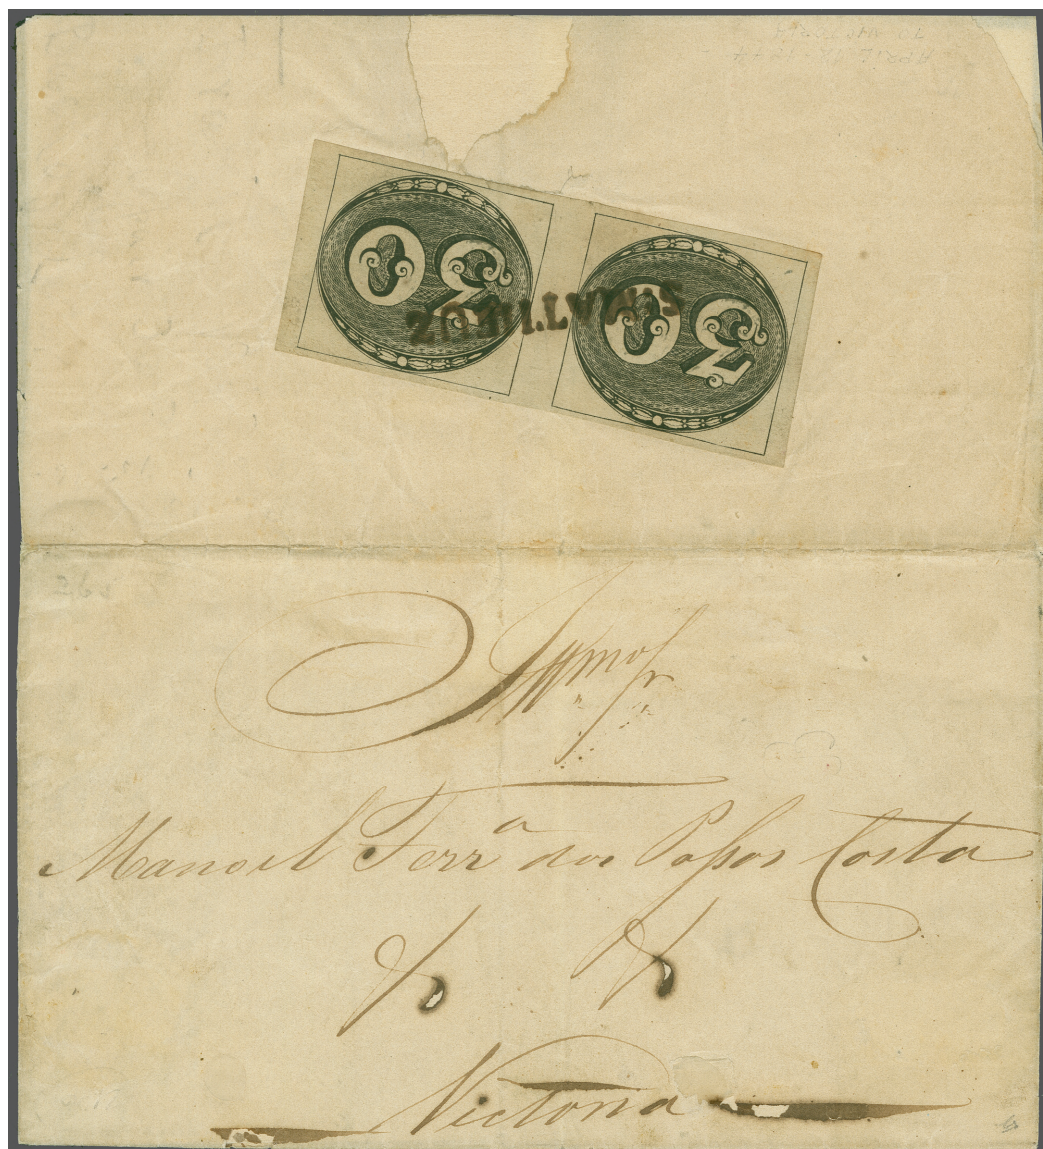 30 30
S. MATTHEUZ
Illmo Sr
Manoel Ferra dos Passos Costa
Victoria